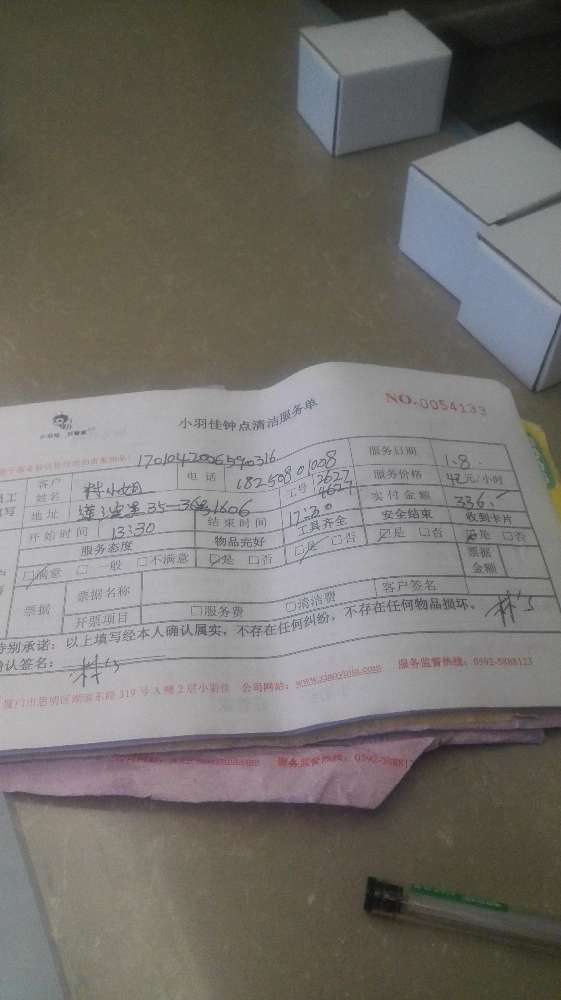 小羽佳钟点清洁服务单
NO.0054133
1701042006590316
客户姓名 林小姐 电话 18250801008 服务日期 1.8.
地址 35-36 1606 工号:2627 4627 服务价格 42元/小时
开始时间 13:30 结束时间 17:30 实付金额 336.
服务态度 物品完好 工具齐全 安全结束 收到卡片
☑满意 □一般 □不满意 ☑是 □否 ☑是 □否 ☑是 □否 ☑是 □否
票据 票据名称 票据金额
开票项目 □服务费 □清洁费 客户签名
特别承诺:以上填写经本人确认属实,不存在任何纠纷,不存在任何物品损坏。
确认签名:
厦门市思明区湖滨东路319号A幢2层小羽佳 公司网站:www.xiaoyujia.com 服务监督热线:0592-5888123
服务监督热线:0592-58881